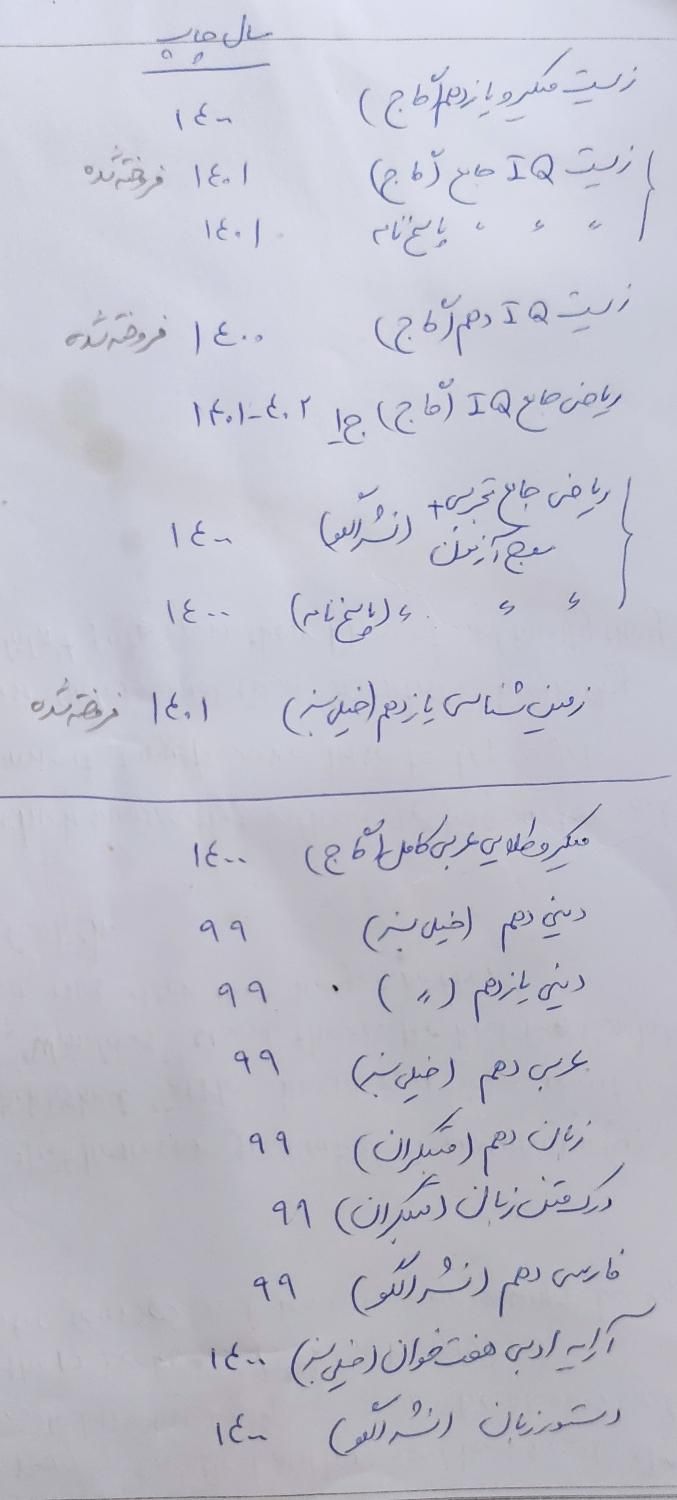 سال چاپ
زیست میکرو یازدهم (گاج) ۱۴۰۰
زیست IQ جامع (گاج) ۱۴۰۱ فروخته شده
〃 〃 〃 پاسخ نامه ۱۴۰۱
زیست IQ دهم (گاج) ۱۴۰۰ فروخته شده
ریاضی جامع IQ (گاج) ج۱ ۱۴۰۱-۴۰۲
ریاضی جامع تجربی +
موج آزمون (نشر الگو) ۱۴۰۰
〃 〃 〃 (پاسخ نامه) ۱۴۰۰
زمین شناسی یازدهم (خیلی سبز) ۱۴۰۱ فروخته شده
میکرو طلایی عربی کامل (گاج) ۱۴۰۰
دینی دهم (خیلی سبز) ۹۹
دینی یازدهم (〃) ۹۹
عربی دهم (خیلی سبز) ۹۹
زبان دهم (مبتکران) ۹۹
درک متن زبان (مبتکران) ۹۹
فارسی دهم (نشر الگو) ۹۹
آرایه ادبی هفت خوان (خیلی سبز) ۱۴۰۰
دستور زبان (نشر الگو) ۱۴۰۰